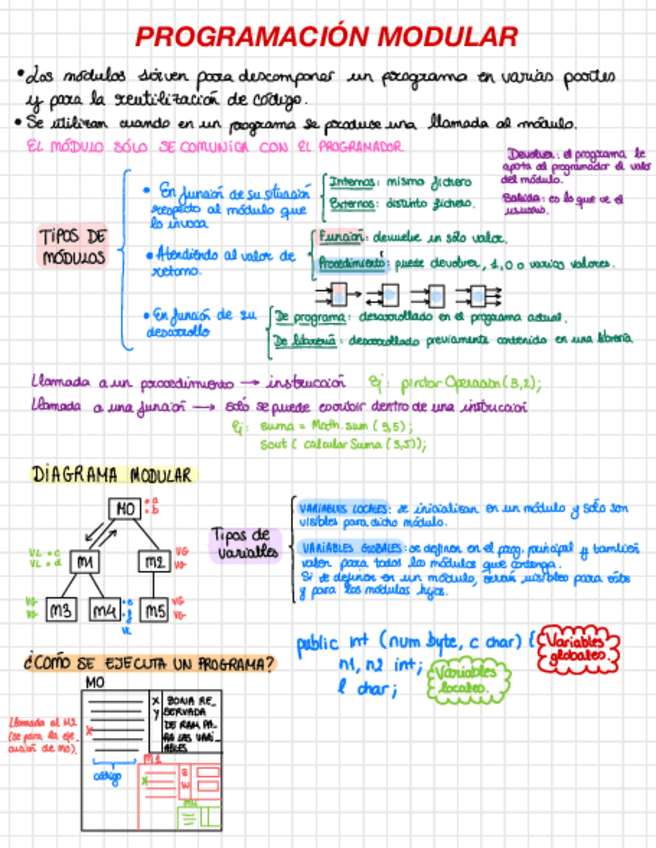 PROGRAMACIÓN MODULAR
• Los módulos sirven para descomponer un programa en varias partes
y para la reutilización de código.
• Se utilizan cuando en un programa se produce una llamada al módulo.
EL MÓDULO SÓLO SE COMUNICA CON EL PROGRAMADOR
Devolver: el programa le
aporta al programador el valor
del módulo.
Salida: es lo que ve el
usuario.
TIPOS DE
MÓDULOS
• En función de su situación
respecto al módulo que
lo invoca
Internos: mismo fichero
Externos: distinto fichero.
• Atendiendo al valor de
retorno.
Función: devuelve un sólo valor.
Procedimiento: puede devolver, 1, 0 o varios valores.
• En función de su
desarrollo
De programa: desarrollado en el programa actual.
De librería: desarrollado previamente contenido en una librería
Llamada a un procedimiento → instrucción Ej: pintar Operacion (3,2);
Llamada a una función → sólo se puede escribir dentro de una instrucción
Ej: suma = Math.sum (3,5);
sout ( calcular Suma (3,5));
DIAGRAMA MODULAR
M0
• a
• b
VL • c
VL • d
M1
M2
VG
VG
VG
VG
M3
M4
• e
• f
VL
M5
VG
VG
Tipos de
variables
VARIABLES LOCALES: se inicializan en un módulo y sólo son
visibles para dicho módulo.
VARIABLES GLOBALES: se definen en el prog. principal y también
valen para todos los módulos que contenga.
Si se definen en un módulo, serán visibles para éste
y para los módulos hijos.
public int (num byte, c char) {
n1, n2 int;
l char;
Variables
globales.
Variables
locales.
¿CÓMO SE EJECUTA UN PROGRAMA?
M0
Llamada al M1
(se para la eje-
cución de M0).
X
X
y
ZONA RE-
SERVADA
DE RAM PA-
RA LAS VARI-
ABLES
código
M1
X